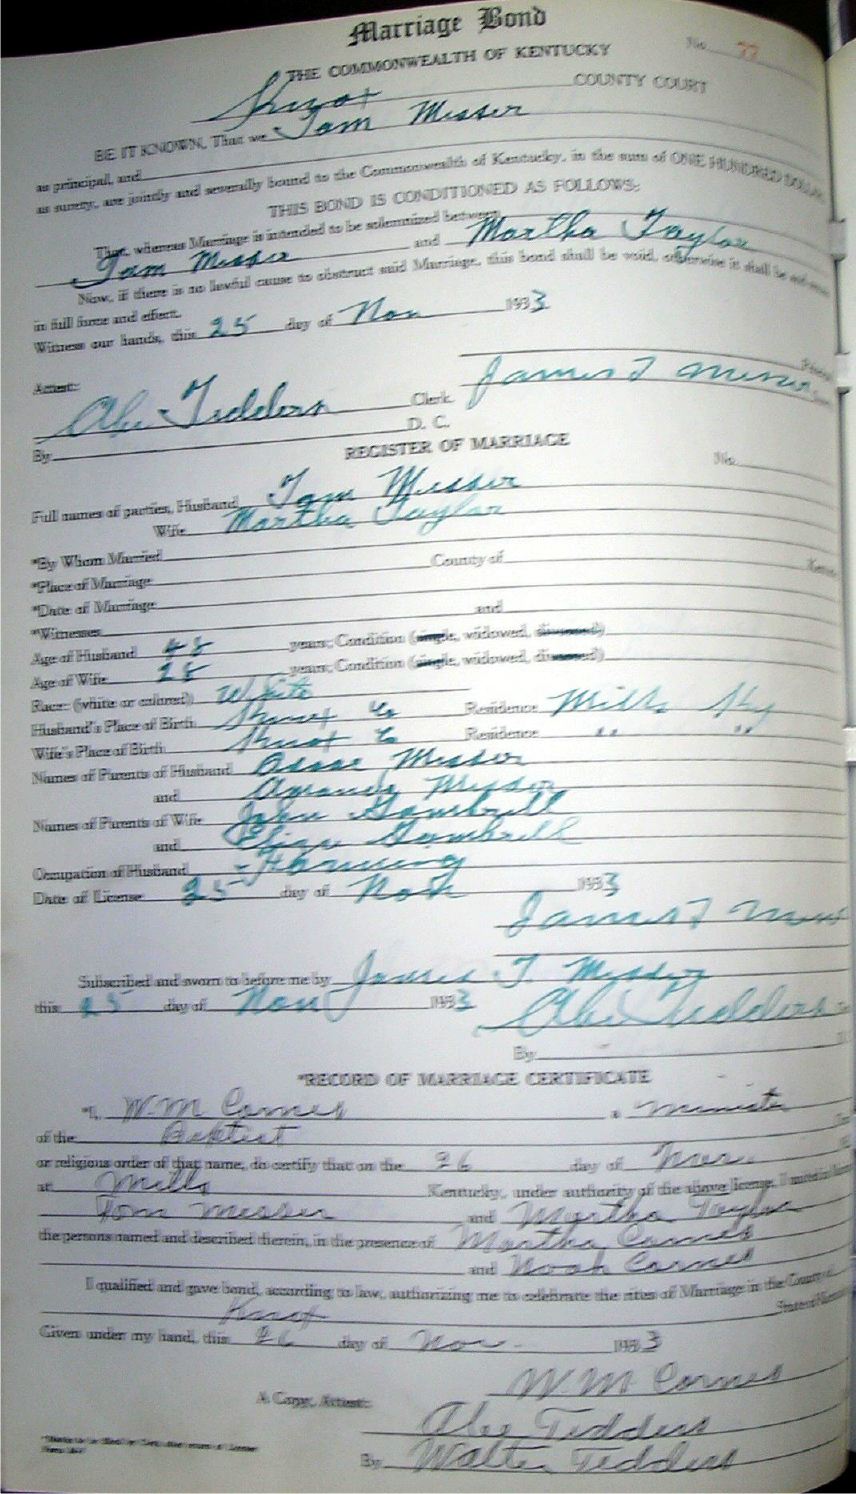 Marriage Bond
No. 77
THE COMMONWEALTH OF KENTUCKY
Knox COUNTY COURT
BE IT KNOWN, That we Tom Messer
as principal, and
as surety, are jointly and severally bound to the Commonwealth of Kentucky, in the sum of ONE HUNDRED DOLLARS
THIS BOND IS CONDITIONED AS FOLLOWS:
That, whereas Marriage is intended to be solemnized between
Tom Messer and Martha Taylor
Now, if there is no lawful cause to obstruct said Marriage, this bond shall be void, otherwise it shall be and remain
in full force and effect.
Witness our hands, this 25 day of Nov 1933
Principal
Attest: James T Messer
Abe Tedders Clerk
D. C.
By
REGISTER OF MARRIAGE
No.
Full names of parties, Husband Tom Messer
Wife Martha Taylor
*By Whom Married
*Place of Marriage County of
*Date of Marriage
*Witnesses and
Age of Husband 48 years; Condition (single, widowed, divorced)
Age of Wife 28 years; Condition (single, widowed, divorced)
Race: (white or colored) White
Husband's Place of Birth Knox Co Residence Mills Ky
Wife's Place of Birth Knox Co Residence " "
Names of Parents of Husband Messer
and Amanda Messer
Names of Parents of Wife John Gambrell
and Eliza Gambrell
Occupation of Husband Farming
Date of License 25 day of Nov 1933
James T Mess
Subscribed and sworn to before me by James T. Messer
this 25 day of Nov 1933
Abe Tedders
By
*RECORD OF MARRIAGE CERTIFICATE
*I, W.M Carnes a Minister
of the Baptist
or religious order of that name, do certify that on the 26 day of Nov.
at Mills Kentucky, under authority of the above license, I united in
Tom Messer and Martha Taylor
the persons named and described therein, in the presence of Martha Carnes
and Noah Carnes
I qualified and gave bond, according to law, authorizing me to celebrate the rites of Marriage in the County of
Knox State of
Given under my hand, this 26 day of Nov. 1933
W M Carnes
A Copy, Attest:
Abe Tedders
By Walter Tedders